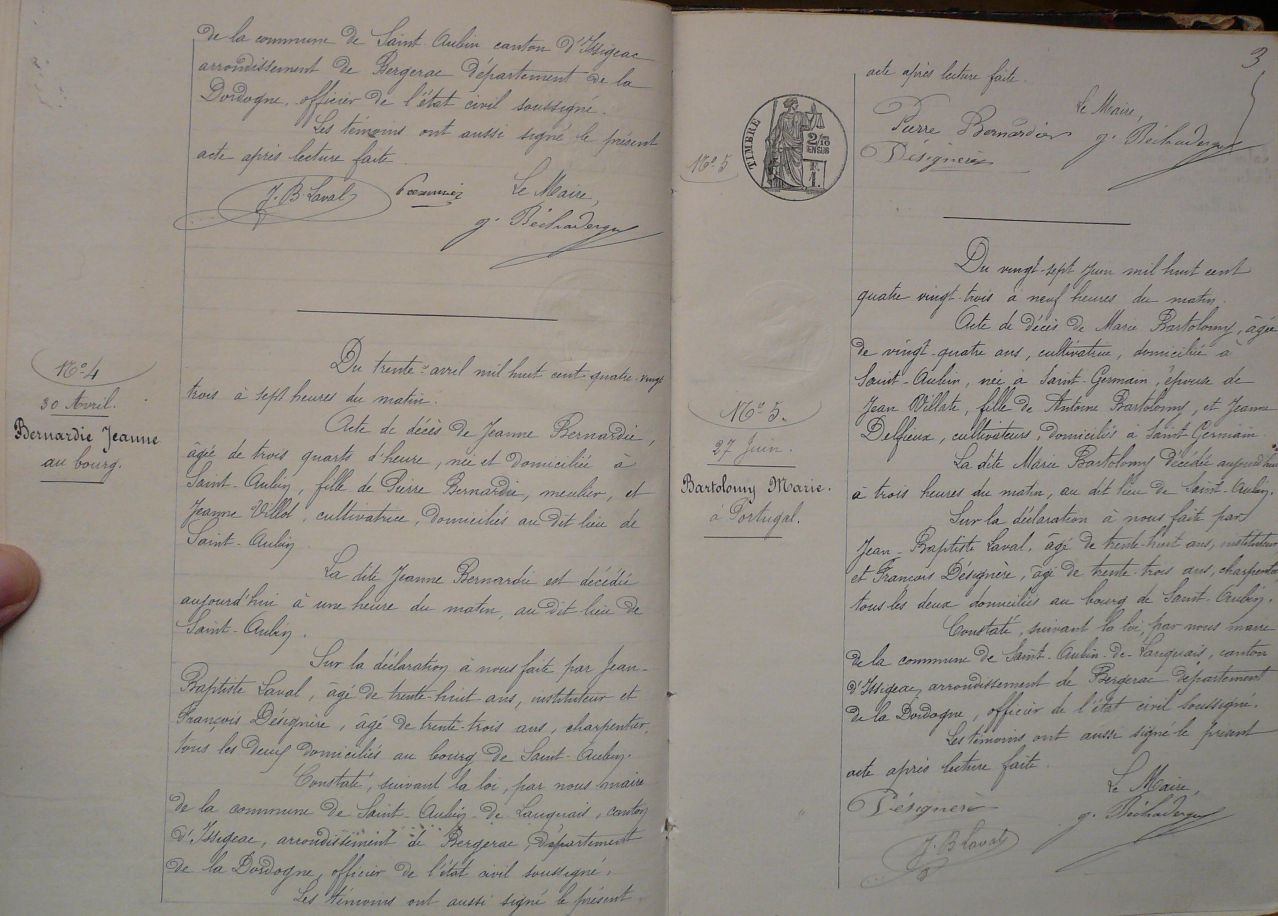 de la commune de Saint-Aubin canton d'Issigeac
arrondissement de Bergerac département de la
Dordogne, officier de l'état civil soussigné.
Les témoins ont aussi signé le présent
acte après lecture faite
J. B Laval
Le Maire,
g. Béchadergue
N° 4
30 Avril.
Bernardie Jeanne
au bourg.
Du trente avril mil huit cent quatre-vingt
trois à sept heures du matin.
Acte de décès de Jeanne Bernardie,
âgée de trois quarts d'heure, née et domiciliée à
Saint-Aubin, fille de Pierre Bernardie, meulier, et
Jeanne Villot, cultivatrice, domiciliés au dit lieu de
Saint-Aubin.
La dite Jeanne Bernardie est décédée
aujourd'hui à une heure du matin, au dit lieu de
Saint-Aubin.
Sur la déclaration à nous faite par Jean-
Baptiste Laval, âgé de trente-huit ans, instituteur et
François Désignère, âgé de trente-trois ans, charpentier,
tous les deux domiciliés au bourg de Saint-Aubin.
Constaté, suivant la loi, par nous maire
de la commune de Saint-Aubin-de-Lanquais, canton
d'Issigeac, arrondissement de Bergerac département
de la Dordogne, officier de l'état civil soussigné.
Les témoins ont aussi signé le présent
3
acte après lecture faite.
Pierre Bernardie
Désignère
Le Maire,
g. Béchadergue
N° 5
TIMBRE
2/10
EN SUS
F.
1.
N° 5.
27 Juin.
Bartolomy Marie.
à Portugal.
Du vingt-sept Juin mil huit cent
quatre vingt-trois à neuf heures du matin.
Acte de décès de Marie Bartolomy, âgée
de vingt-quatre ans, cultivatrice, domiciliée à
Saint-Aubin, née à Saint-Germain, épouse de
Jean Villate, fille de Antoine Bartolomy, et Jeanne
Delfieux, cultivateurs, domiciliés à Saint Germain.
La dite Marie Bartolomy décédée aujourd'hui
à trois heures du matin, au dit lieu de Saint-Aubin.
Sur la déclaration à nous faite par
Jean-Baptiste Laval, âgé de trente-huit ans, instituteur
et François Désignère, âgé de trente-trois ans, charpentier
tous les deux domiciliés au bourg de Saint-Aubin.
Constaté, suivant la loi, par nous maire
de la commune de Saint-Aubin-de-Lanquais, canton
d'Issigeac, arrondissement de Bergerac département
de la Dordogne, officier de l'état civil soussigné.
Les témoins ont aussi signé le présent
acte après lecture faite.
Désignère
Le Maire,
g. Béchadergue
J. B Laval